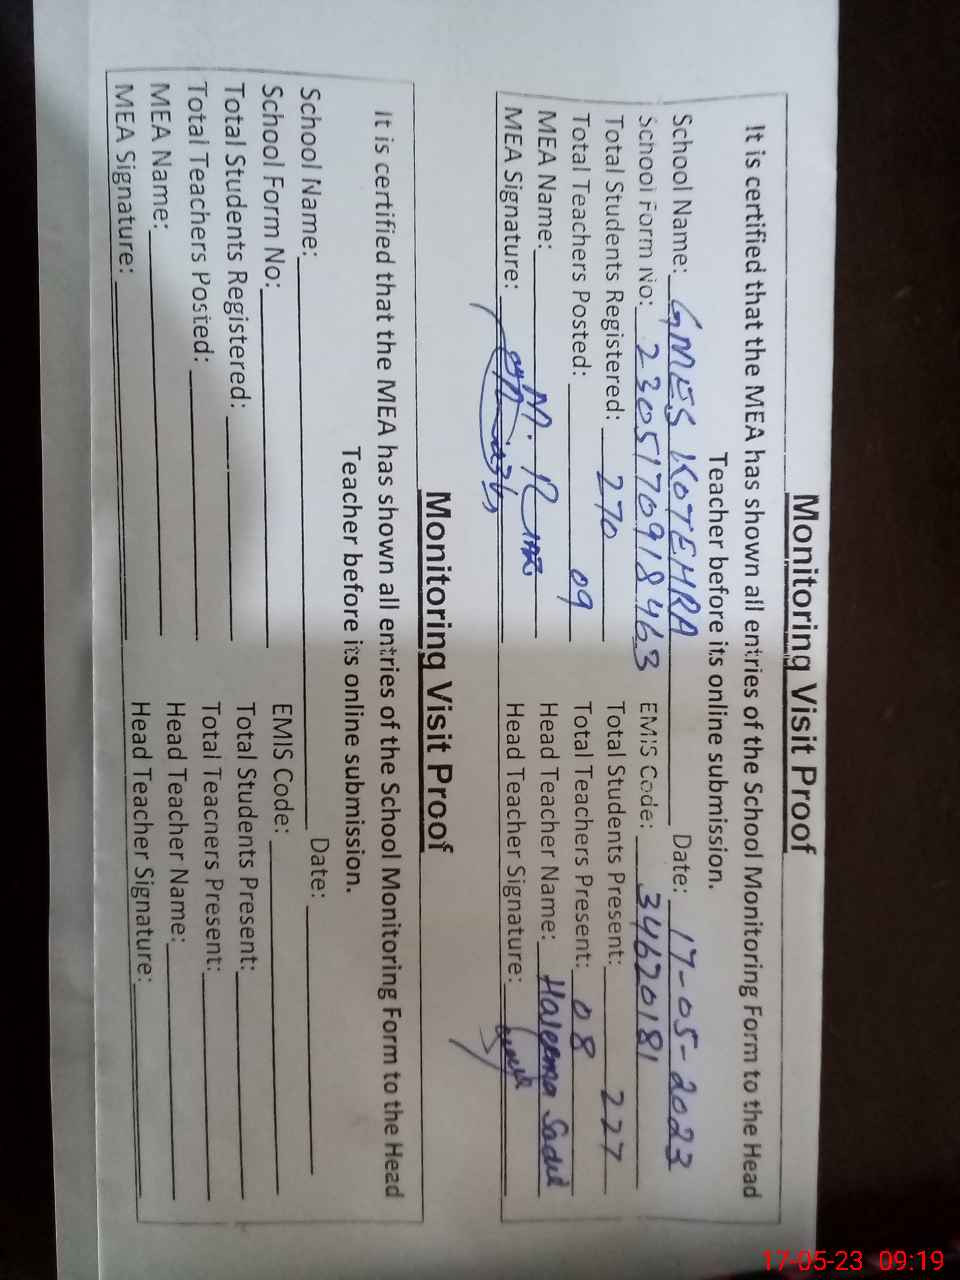 Monitoring Visit Proof
It is certified that the MEA has shown all entries of the School Monitoring Form to the Head
Teacher before its online submission.
School Name: GMES KOTEHRA Date: 17-05-2023
School Form No: 2305170918463 EMIS Code: 34620181
Total Students Registered: 270 Total Students Present: 227
Total Teachers Posted: 09 Total Teachers Present: 08
MEA Name: M. Head Teacher Name: Haleema Sadia
MEA Signature: Head Teacher Signature:
Monitoring Visit Proof
It is certified that the MEA has shown all entries of the School Monitoring Form to the Head
Teacher before its online submission.
School Name: Date:
School Form No: EMIS Code:
Total Students Registered: Total Students Present:
Total Teachers Posted: Total Teachers Present:
MEA Name: Head Teacher Name:
MEA Signature: Head Teacher Signature:
17-05-23 09:19